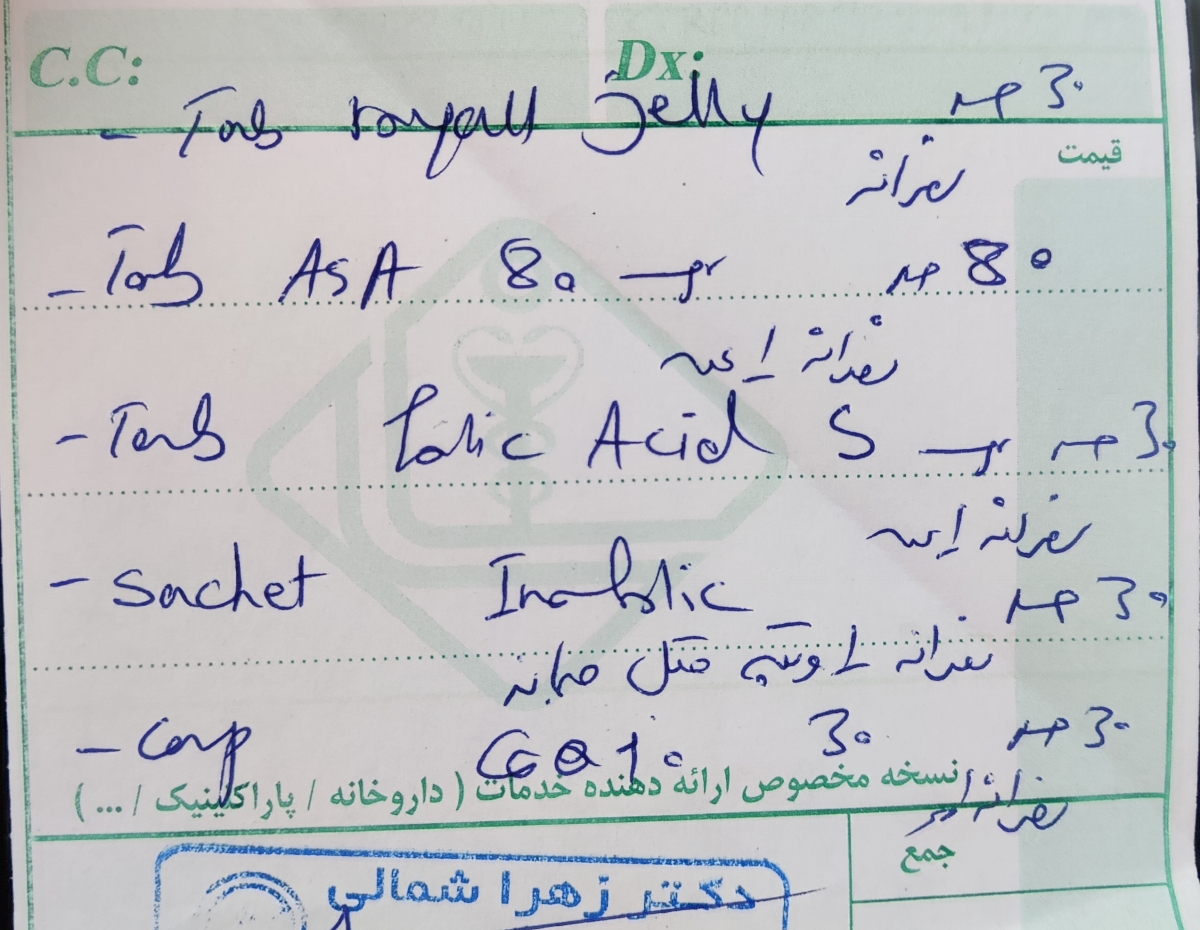 C.C: Dx:
- Tab royall Jelly 30 عدد
قیمت
روزانه
- Tab ASA 80 عدد 80
روزانه 1 عدد
- Tab Folic Acid 5 عدد 30
روزانه 1 عدد
- Sachet Inofolic عدد 30
روزانه 1
- Cap CoQ10 30 عدد 30
نسخه مخصوص ارائه دهنده خدمات ( داروخانه / پاراکلینیک / ... )
روزانه
جمع
دکتر زهرا شمالی